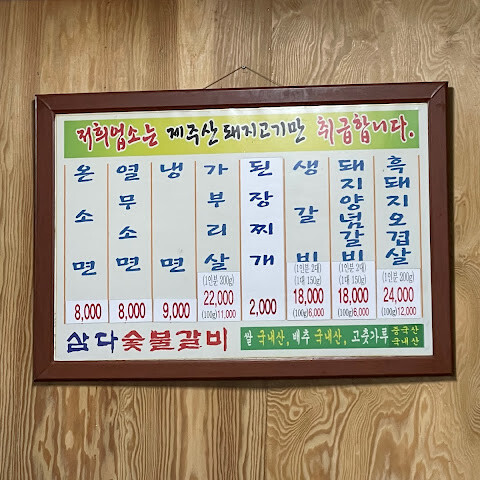 저희업소는 제주산 돼지고기만 취급합니다.
온소면
8,000
열무소면
8,000
냉면
9,000
가부리살
(1인분 200g)
22,000
(100g)11,000
된장찌개
2,000
생갈비
(1인분 2대)
(1대 150g)
18,000
(100g)6,000
돼지양념갈비
(1인분 2대)
(1대 150g)
18,000
(100g)6,000
흑돼지오겹살
(1인분 200g)
24,000
(100g)12,000
삼다숯불갈비
쌀 국내산, 배추 국내산, 고춧가루 중국산 국내산